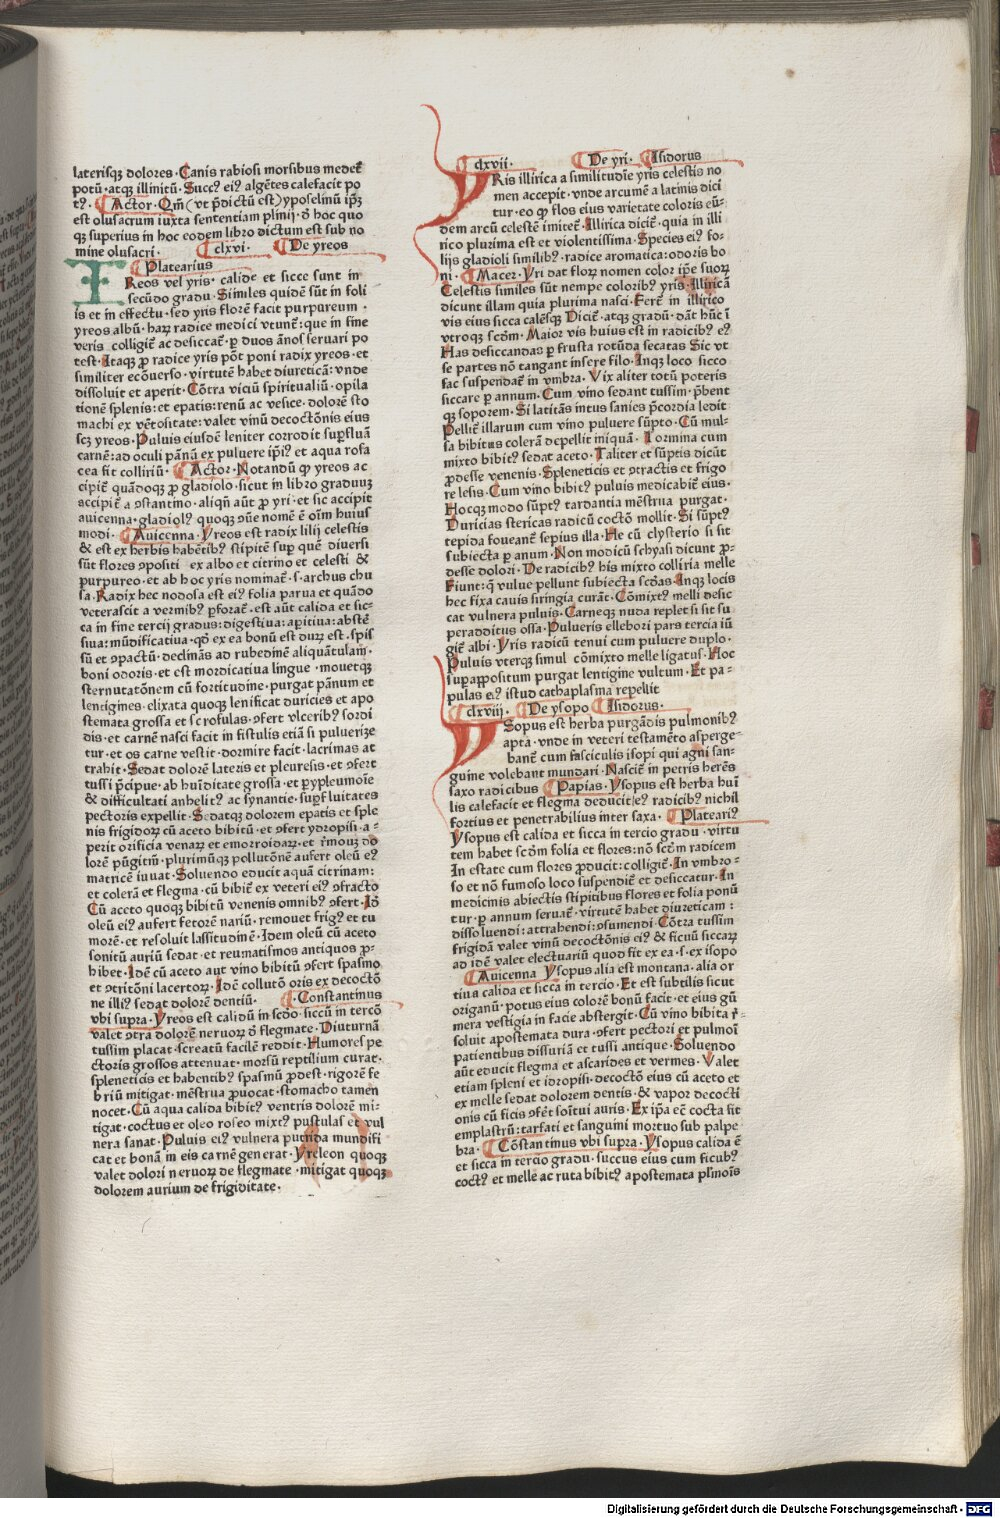 laterisqꝫ dolores · Canis rabiosi morsibus medet᷑
potū · atqꝫ illinitū · Succꝰ eiꝰ algētes calefacit po
tꝰ · Actor · Qm̄ ( vt p̄dictū est ) yposelinū ip̄ꝫ
est olusacrum iuxta sententiam plinij · ð hoc quo
qꝫ superius in hoc eodem libro dictum est sub no
mine olusacri · clxvi · De yreos
Platearius
Reos vel yris · calide et sicce sunt in
secūdo gradu · Similes quidē sūt in foli
is et in effectu · sed yris florē facit purpureum ·
yreos albū · haꝝ radice medici vtunt᷑ : que in fine
veris colligit᷑ ac desiccat᷑ · ꝑ duos ānos seruari po
test · Itaqꝫ ꝓ radice yris pōt poni radix yreos · et
similiter ecōuerso · virtutē habet diureticā : vnde
dissoluit et aperit · Cōtra viciū spiritualiū · opila
tionē splenis : et epatis : renū ac vesice · dolorē sto
machi ex vētositate : valet vinū decoctōnis eius
scꝫ yreos · Puluis eiusdē leniter corrodit suꝑfluā
carnē : ad oculi pānū ex puluere ip̄iꝰ et aqua rosa
cea fit colliriū · Actor · Notandū ꝙ yreos ac
cipit᷑ quādoqꝫ ꝓ gladiolo · sicut in libro graduuꝫ
accipit᷑ a ꝯstantino · aliqn̄ aūt ꝓ yri · et sic accipit
auicenna · gladiolꝰ quoqꝫ ꝯūe nomē ē oīm huius
modi · Auicenna · Yreos est radix lilij celestis
& est ex herbis habētibꝰ stipitē suꝑ quē diuersi
sūt flores ꝯpositi ex albo et citrino et celesti &
purpureo · et ab hoc yris nominat᷑ · s · archus chu
sa · Radix hec nodosa est eiꝰ folia parua et quādo
veterascit a vermibꝰ ꝑforat᷑ · est aūt calida et sic-
ca in fine tercij gradus : digestiua : apitiua : abstē
siua : mūdificatiua · qð ex ea bonū est duꝝ est · spis
sū et ꝯpactū : declināS ad rubedinē aliquātulaꝫ ·
boni odoris · et est mordicatiua lingue · mouetqꝫ
sternutatōnem cū fortitudine · purgat pānum et
lentigines · elixata quoqꝫ lenificat duricies et apo
stemata grossa et scrofulas · ꝯfert vlceribꝰ sordi
dis · et carnē nasci facit in fistulis etiā si pulueriꝫe
tur · et os carne vestit · dormire facit · lacrimas at
trahit · Sedat dolorē lateris et pleuresis · et ꝯfert
tussi p̄cipue · ab huīditate grossa · et ꝑypleumoīe
& difficultati anhelitꝰ ac synantie · suꝑfluitates
pectoris expellit · Sedatqꝫ dolorem epatis et sple
nis frigidoꝝ cū aceto bibitū · et ꝯfert ydropisi · a-
perit orificia venaꝝ et emorroidaꝝ · et r̄mouꝫ do
lorē pūgitīū · plurimūqꝫ pollutōnē aufert oleū eꝰ
matricē iuuat · Soluendo educit aquā citrinam :
et colerā et flegma · cū bibit᷑ ex veteri eiꝰ ꝯfracto
Cū aceto quoqꝫ bibitū venenis omnibꝰ ꝯfert · Iō
oleū eiꝰ aufert fetorē nariū · remouet frigꝰ et tu
morē · et resoluit lassitudinē · Idem oleū cū aceto
sonitū auriū sedat · et reumatismos antiquos ꝓ-
hibet · Idē cū aceto aut vino bibitū ꝯfert spasmo
et ꝯtritōni lacertoꝝ · Idē collutō oris ex decoctō
ne illiꝰ sedat dolorē dentiū · Constantinus
vbi supra · Yreos est calidū in scðo · siccū in tercō
valet ꝯtra dolorē neruoꝝ ð flegmate · Diuturnā
tussim placat · screatū facilē reddit · Humores pe
ctoris grossos attenuat · morsū reptilium curat ·
spleneticis et habentibꝰ spasmū ꝓdest · rigorē fe
briū mitigat · mēstrua ꝓuocat · stomacho tamen
nocet · Cū aqua calida bibitꝰ ventris dolorē mi-
tigat · coctus et oleo roseo mixtꝰ pustulas et vul
nera sanat · Puluis eiꝰ vulnera putrida mundifi
cat et bonā in eis carnē generat · Yreleon quoqꝫ
valet dolori neruoꝝ de flegmate · mitigat quoqꝫ
dolorem aurium de frigiditate ·
clxvii · De yri · Isidorus
YRis illirica a similitudīe yris celestis no
men accepit · vnde arcumē a latinis dici
tur · eo ꝙ flos eius varietate coloris eū-
dem arcū celestē imitet᷑ · Illirica dicit᷑ · quia in illi
rico plurima est et violentissima · Species eiꝰ fo-
lijs gladioli similibꝰ · radice aromatica : odoris bo
ni · Macer · Yri dat floꝝ nomen color ip̄e suoꝝ
Celestis similes sūt nempe coloribꝰ yris · Illiricā
dicunt illam quia plurima nasci · Fert᷑ in illirico
vis eius sicca calēsqꝫ Dicit᷑ · atqꝫ gradū · dāt hūc ī
vtroqꝫ scðm · Maior vis huius est in radicibꝰ eꝰ
Has desiccandas ꝑ frusta rotūda secatas Sic vt
se partes nō tangant insere filo · Inqꝫ loco sicco
fac suspendat᷑ in vmbra · Vix aliter totū poteris
siccare ꝑ annum · Cum vino sedant tussim · p̄bent
qꝫ soporem · Si latitās intus sanies p̄cordia ledit
Pellit᷑ illarum cum vino puluere sūpto · Cū mul-
sa bibitus colerā depellit iniquā · Tormina cum
mixto bibitꝰ sedat aceto · Taliter et sūptis dicūt
ꝓdesse venenis · Spleneticis et ꝯtractis et frigo
re lesis · Cum vino bibitꝰ puluis medicabit᷑ eius ·
Hocqꝫ modo sūptꝰ tardantia mēstrua purgat ·
Duricias stericas radicū coctō mollit · Si sūptꝰ
tepida foueant᷑ sepius illa · He cū clysterio si sit
subiecta ꝑ anum · Non modicū schyasi dicunt ꝓ-
desse dolori · De radicibꝰ his mixto colliria melle
Fiunt : q̄ vulue pellunt subiecta scðas · Inqꝫ locis
hec fixa cauis siringia curāt · Cōmixtꝰ melli desic
cat vulnera puluis · Carneqꝫ nuda replet si sit su
peradditus ossa · Pulueris ellebori pars tercia iū
git᷑ albi · Yris radicū tenui cum puluere duplo ·
Puluis vterqꝫ simul cōmixto melle ligatus · Hoc
suꝑappositum purgat lentigine vultum · Et pa-
pulas eiꝰ istud cathaplasma repellit
clxviii · De ysopo Isidorus ·
YSopus est herba purgādis pulmonibꝰ
apta · vnde in veteri testamēto asperge-
bant᷑ cum fasciculis isopi qui agni san-
guine volebant mundari · Nascit᷑ in petris herēs
saxo radicibus Papias · Ysopus est herba huī
lis calefacit et flegma deducit | eꝰ radicibꝰ nichil
fortius et penetrabilius inter saxa · Plateariꝰ
Ysopus est calida et sicca in tercio gradu · virtu
tem habet scðm folia et flores : nō scðm radicem
In estate cum flores ꝓducit : colligit᷑ · In vmbro-
so et nō fumoso loco suspendit᷑ et desiccatur · In
medicinis abiectis stipitibus flores et folia ponū
tur · ꝑ annum seruat᷑ · virtutē habet diureticam :
dissoluendi : attrahendi : ꝯsumendi · Cōtra tussim
frigidā valet vinū decoctōnis eiꝰ & ficuū siccaꝝ
ad idē valet electuariū quod fit ex ea · s · ex isopo
Auicenna Ysopus alia est montana · alia or
tiua calida et sicca in tercio · Et est subtilis sicut
origanū · potus eius colorē bonū facit · et eius gū
mera vestigia in facie abstergit · Cū vino bibita r̄-
soluit apostemata dura · ꝯfert pectori et pulmoī
patientibus dissuriā et tussi antique · Soluendo
aūt educit flegma et ascarides et vermes · Valet
etiam spleni et idropisi · decoctō eius cū aceto et
ex melle sedat dolorem dentis · & vapor decocti
onis cū ficis ꝯfert soītui auris · Ex ip̄a eē cocta fit
emplastrū : tarfati et sanguini mortuo sub palpe
bra · Cōstantinus vbi supra · Ysopus calida ē
et sicca in tercio gradu · succus eius cum ficubꝰ
coctꝰ et melle ac ruta bibitꝰ apostemata pl̄moīs
Digitalisierung gefördert durch die Deutsche Forschungsgemeinschaft - DFG